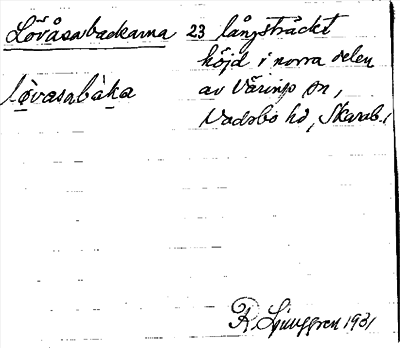 Lövåsabackarna 23 långsträckt
höjd i norra delen
lòvasabàka av Väringo sn,
Vadsbo hd, Skarab.
R Ljunggren 1931